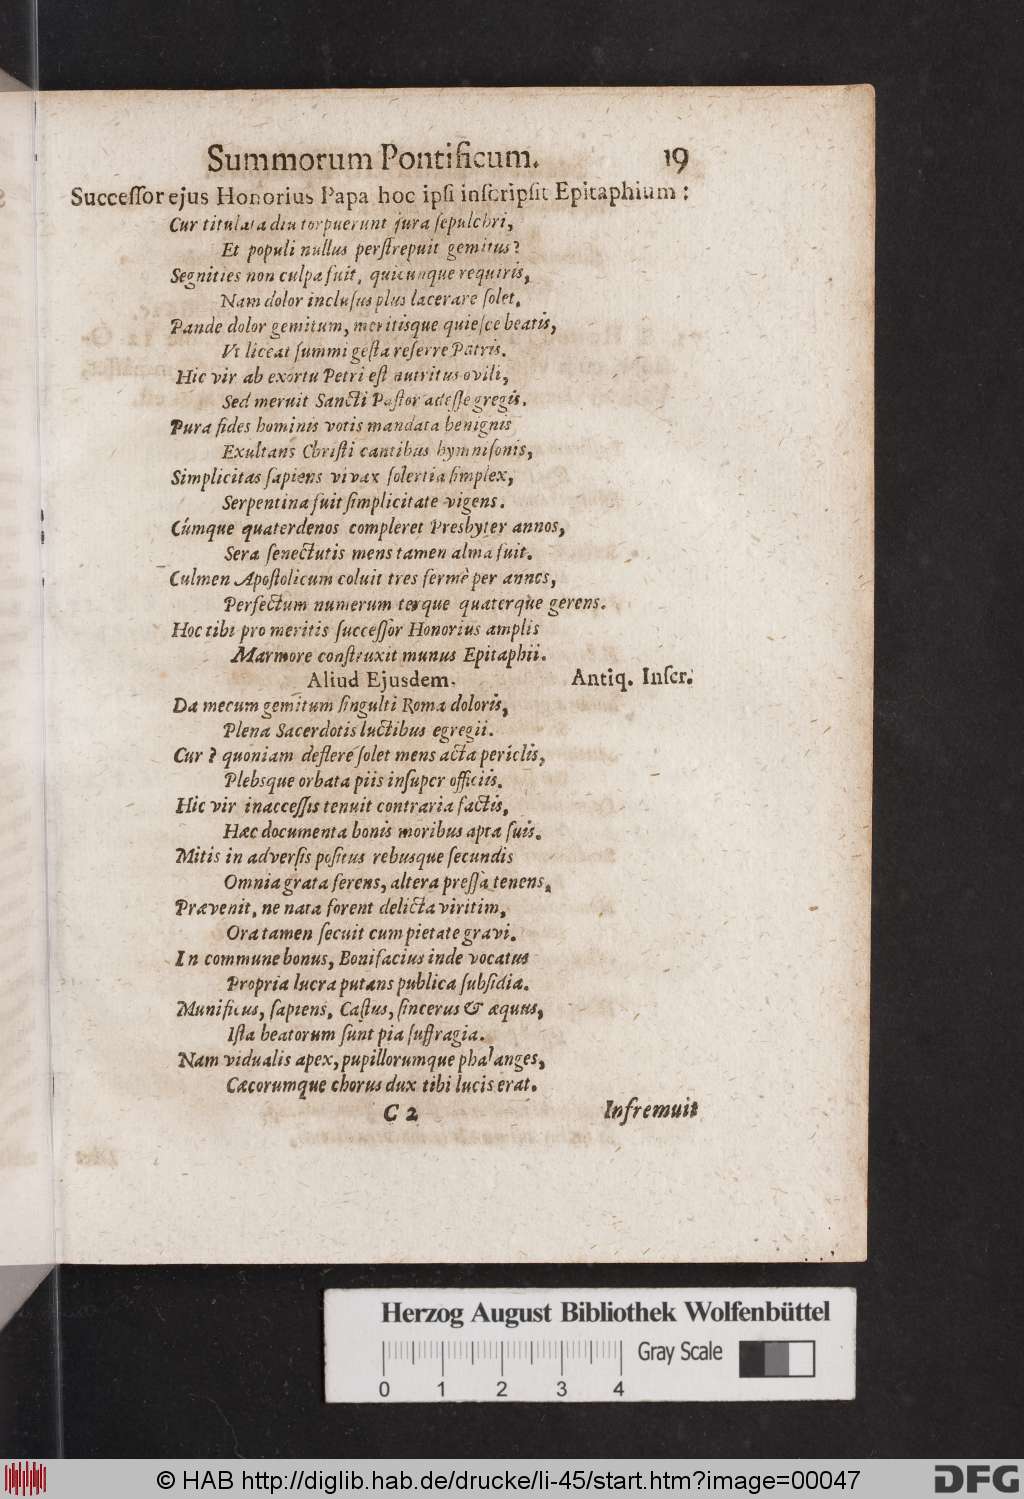 Summorum Pontificum. 19
Successor ejus Honorius Papa hoc ipsi inscripsit Epitaphium:
Cur titulata diu torpuerunt jura sepulchri,
Et populi nullus perstrepuit gemitus?
Segnities non culpa fuit, quicunque requiris,
Nam dolor inclusus plus lacerare solet.
Pande dolor gemitum, meritisque quiesce beatis,
Ut liceat summi gesta referre Patris.
Hic vir ab exortu Petri est nutritus ovili,
Sed meruit Sancti Pastor adesse gregis.
Pura fides hominis votis mandata benignis
Exultans Christi cantibus hymnisonis,
Simplicitas sapiens vivax solertia simplex,
Serpentina fuit simplicitate vigens.
Cúmque quaterdenos compleret Presbyter annos,
Sera senectutis mens tamen alma fuit.
Culmen Apostolicum coluit tres fermè per annos,
Perfectum numerum terque quaterque gerens.
Hoc tibi pro meritis successor Honorius amplis
Marmore construxit munus Epitaphii.
Aliud Ejusdem. Antiq. Inscr.
Da mecum gemitum singulti Roma doloris,
Plena Sacerdotis luctibus egregii.
Cur? quoniam deflere solet mens acta periclis,
Plebsque orbata piis insuper officiis.
Hic vir inaccessis tenuit contraria factis,
Hæc documenta bonis moribus apta suis.
Mitis in adversis positus rebusque secundis
Omnia grata ferens, altera pressa tenens,
Prævenit, ne nata forent delicta viritim,
Ora tamen secuit cum pietate gravi.
In commune bonus, Bonifacius inde vocatus
Propria lucra putans publica subsidia.
Munificus, sapiens, Castus, sincerus & æquus,
Ista beatorum sunt pia suffragia.
Nam vidualis apex, pupillorumque phalanges,
Cæcorumque chorus dux tibi lucis erat.
C 2 Infremuit
Herzog August Bibliothek Wolfenbüttel
Gray Scale
0 1 2 3 4
© HAB http://diglib.hab.de/drucke/li-45/start.htm?image=00047
DFG